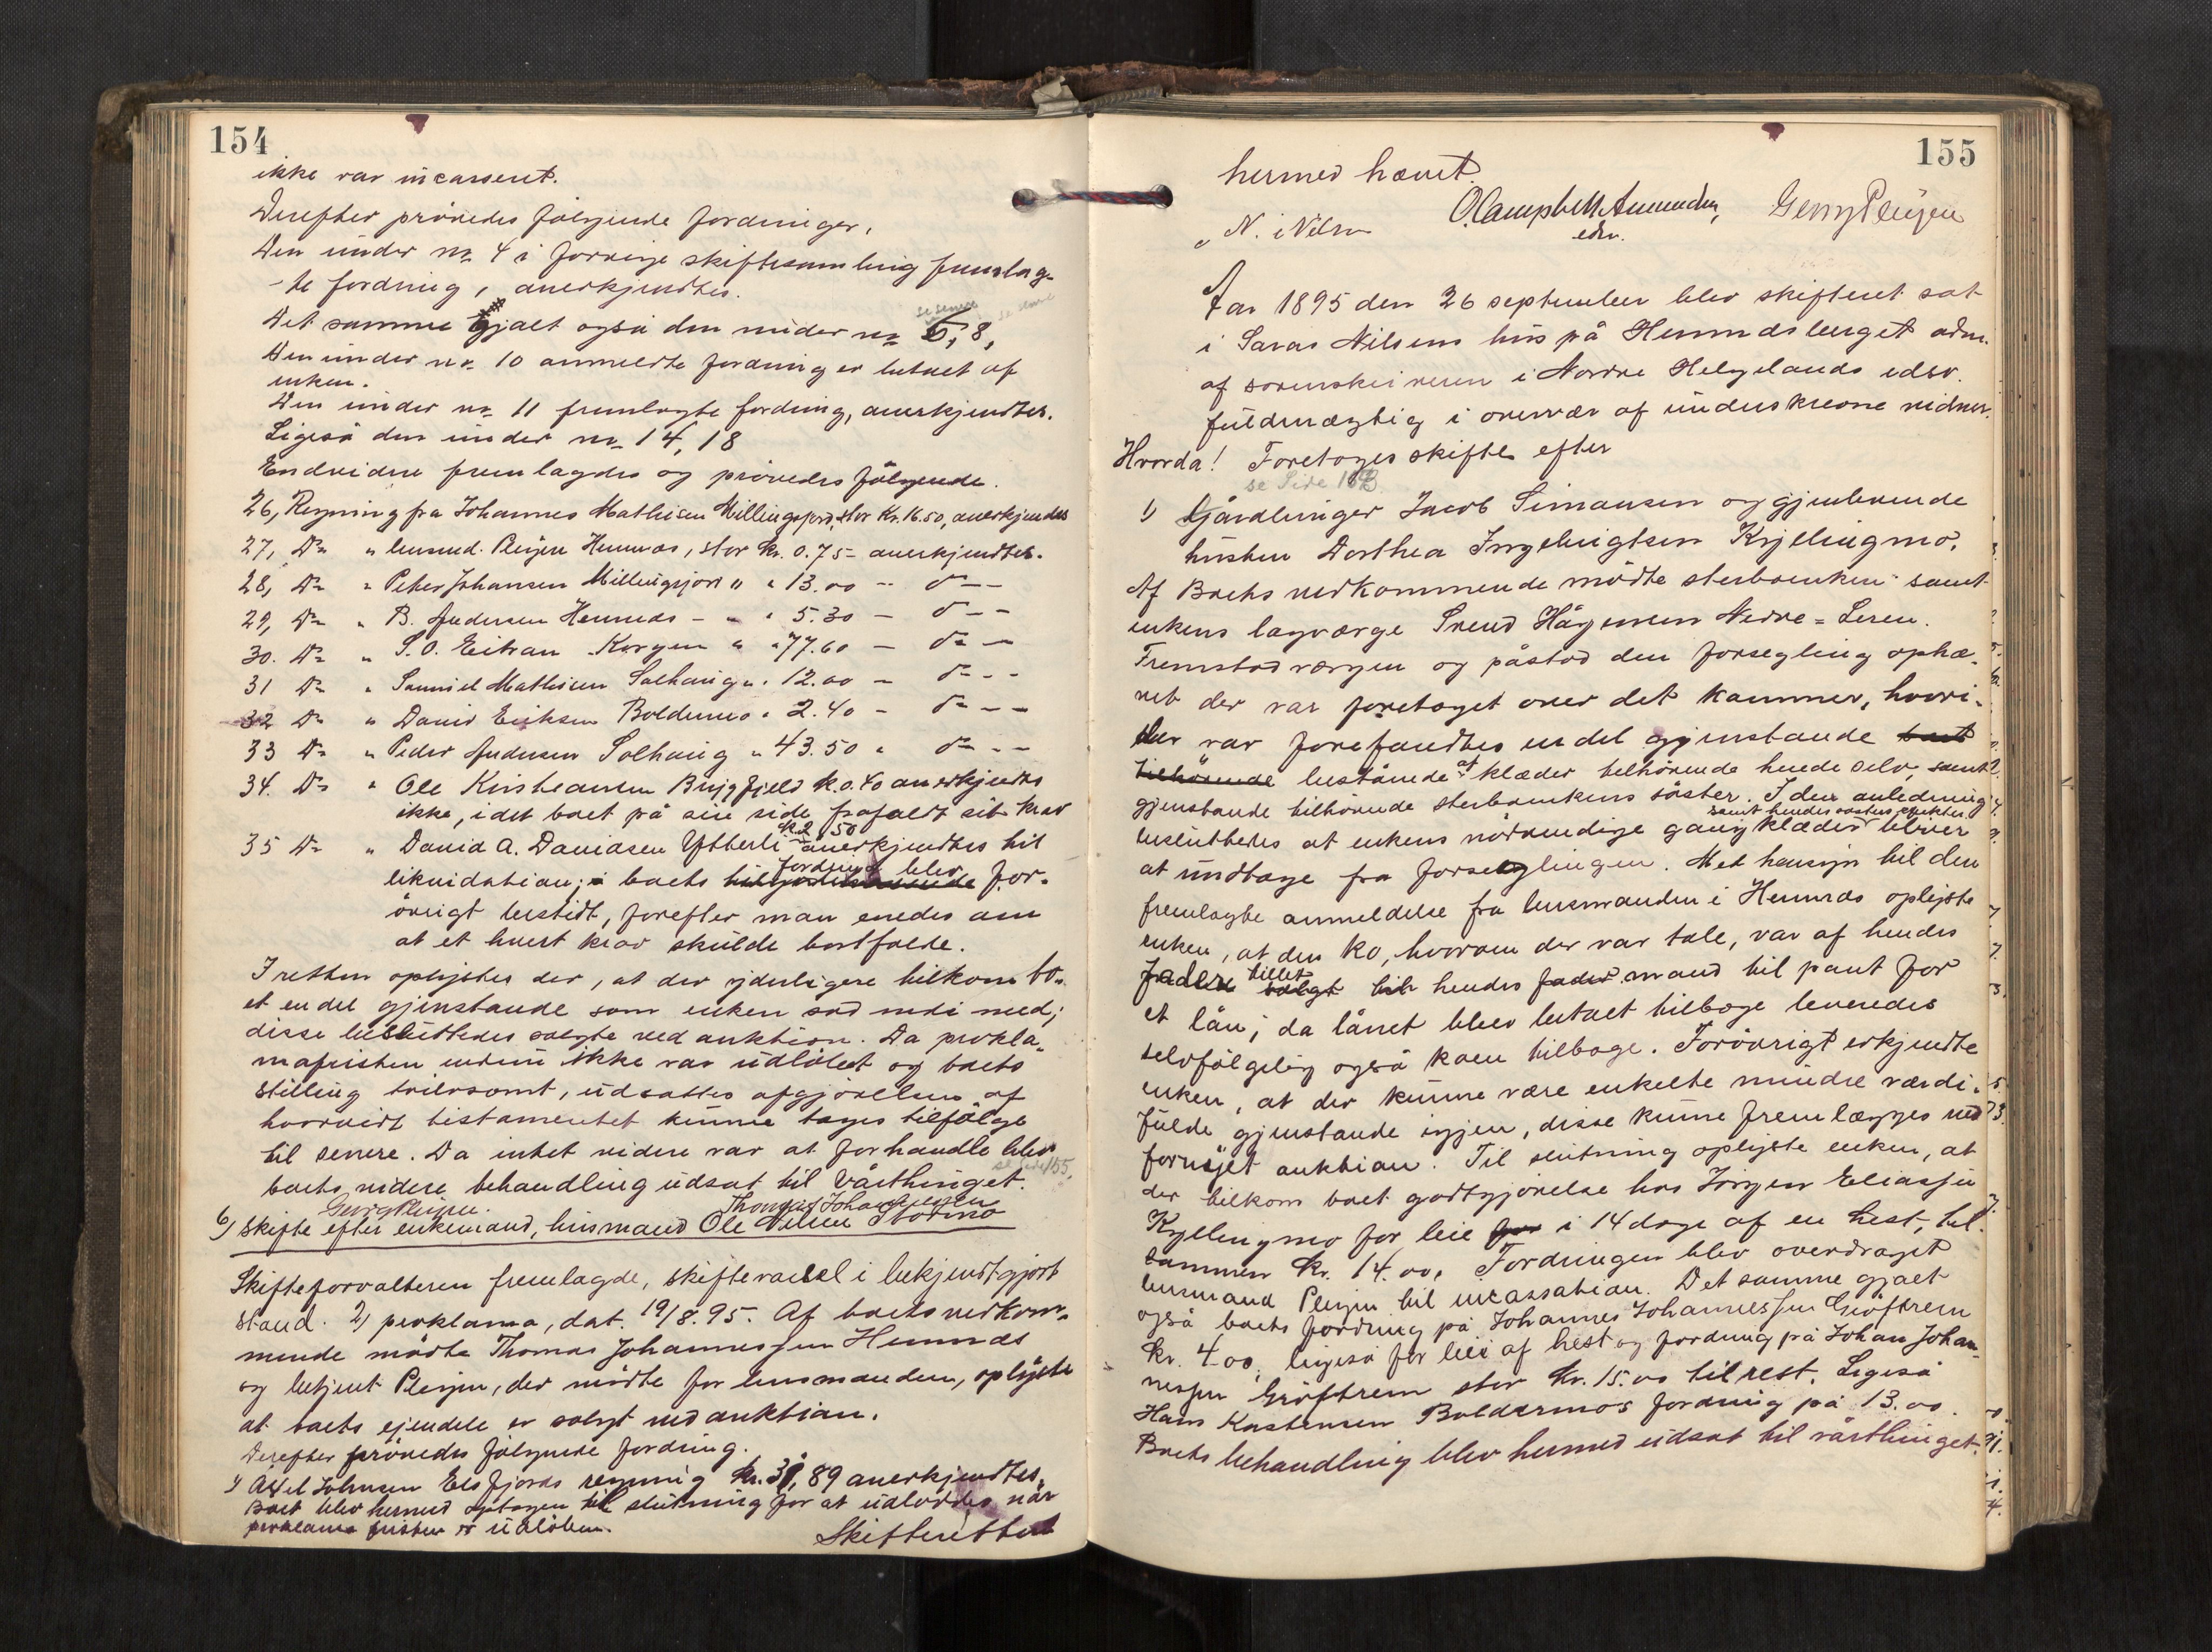 154
ikke var incasseret.
Derefter prövedes fölgende fordringer,
Den under no 4 i forrige skiftesamling fremlag-
te fordring, anerkjendtes.
Det samme gjalt også den under no 6, 8,
Den under no 10 anmeldte fordring er betalt af
enken.
Den under no 11 fremlagte fordring, anerkjendtes.
Ligeså den under no 14, 18
Endvidere fremlagdes og prövedes fölgende.
26, Regning fra Johannes Mathisen Millingsjord, stor Kr. 16.50, anerkjendtes
27, Do " lensmd. Pleijm Hemnæs, stor kr. 0.75 - anerkjendtes.
28, Do " Peter Johansen Millingsjord " " 13.00 - do -
29, Do " B. Andersen Hemnes - " " 5.30 - do -
30. Do " S. O. Eitran Korgen " " 77.60 - do -
31 Do " Samuel Mathisen Solhaug " " 12.00 - do -
32 Do " David Eriksen Boldermo " 2.40 - do -
33 Do " Peder Andersen Solhaug " 43.50 " do -
34. Do " Ole Kristiansen Brygfjeld k. 0.40 anerkjendtes
ikke, idet boet på sin side frafaldt sit krav
35 Do " David A. Davidsen Ytterli kr 2.50 anerkjendtes til
likvidation; boets fordring blev for-
övrigt bestridt, hvorefter man enedes om
at et hvert krav skulde bortfalde.
I retten oplystes der, at der yderligere tilkom bo-
et en del gjenstande som enken sad inde med;
disse besluttedes solgte ved auktion. Da prokla-
mafristen endnu ikke var udlöbet og boets
stilling tvilsomt, udsattes afgjörelsen af
hvorvidt testamentet kunne tages tilfölge
til senere. Da intet videre var at forhandle blev
boets videre behandling udsat til Vårthinget. se side 155
Georg Pleijm. Thomas Johannessen
6) Skifte efter enkemand, husmand Ole Nilsen Stormo
Skifteforvalteren fremlagde, skiftevarsel i bekjendtgjort
stand. 2) proklama, dat. 19/8. 95. Af boets vedkom-
mende mödte Thomas Johannessen Hemnæs
og betjent Pleijm, der mödte for lensmanden, oplyste
at boets ejendele er solgt ved auktion.
Derefter prövedes fölgende fordring.
1) Axel Johnsen Elsfjords regning kr. 31,89 anerkjendtes.
Boet blev hermed optagen til slutning for at udloddes når
proklama fristen er udlöben.
Skifteretten
155
hermed hævet.
N. Nilsen O. Campbell Amundsen, edsv. Georg Pleijm
Aar 1895 den 26 september blev skifteret sat
i Saras Nilsens hus på Hemnæsberget adm.
af sorenskriveren i Nordre Helgelands edsv.
fuldmægtig i overvær af underskrevne vidner.
Hvorda! Foretoges skifte efter
se Side 163
1) Gårdbruger Jacob Simonsen og gjenlevende
hustru Dorthea Ingebrigtsen Kyllingmo.
Af Boets vedkommende mödte sterboenken samt
enkens lagværge Svend Hågensen Nedre = Leren.
Fremstod værgen og påstod den forsegling ophæ-
vet der var foretaget over det kammer, hvori-
der var forefandtes en del gjenstande boet
tilhörende bestående af klæder tilhörende hende selv, samt
gjenstande tilhörende sterboenkens söster. I den anledning
samt hendes søsters effekter
besluttedes at enkens nödvendige gangklæder bliver
at undtage fra forseglingen. Med hensyn til den
fremlagte anmeldelse fra lensmanden i Hemnæs oplyste
enken, at den ko, hvorom der var tale, var af hendes
fader stillet solgt til hendes fader mand til pant for
et lån; da lånet blev betalt tilbage leveredes
selvfölgelig også koen tilbage. Forövrigt erkjendte
enken, at der kunne være enkelte mindre værdi-
fulde gjenstande igjen, disse kunne fremlægges ved
fornyet auktion. Til slutning oplyste enken, at
der tilkom boet godtgjörelse hos Jörgen Eliassen
Kyllingmo for leie for i 14 dage af en hest, til-
sammen kr. 14.00. Fordringen blev overdraget
lensmand Pleijm til incassation. Det samme gjalt
også boets fordring på Johannes Johannessen Gröftrem
kr. 4.00, ligeså for leie af hest og fordring på Johan Johan-
nessen Gröftrem stor kr. 15.00 til rest. Ligeså
Hans Kastensen Boldermos fordring på 13.00.
Boets behandling blev hermed udsat til vårthinget.